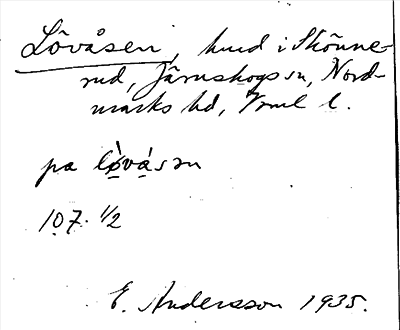 Lövåsen, hmd i Skönne-
rud, Järnskogs sn, Nord-
marks hd, Vrml l.
pa lò̤vá̤sən
107. 1/2
E. Andersson 1935.